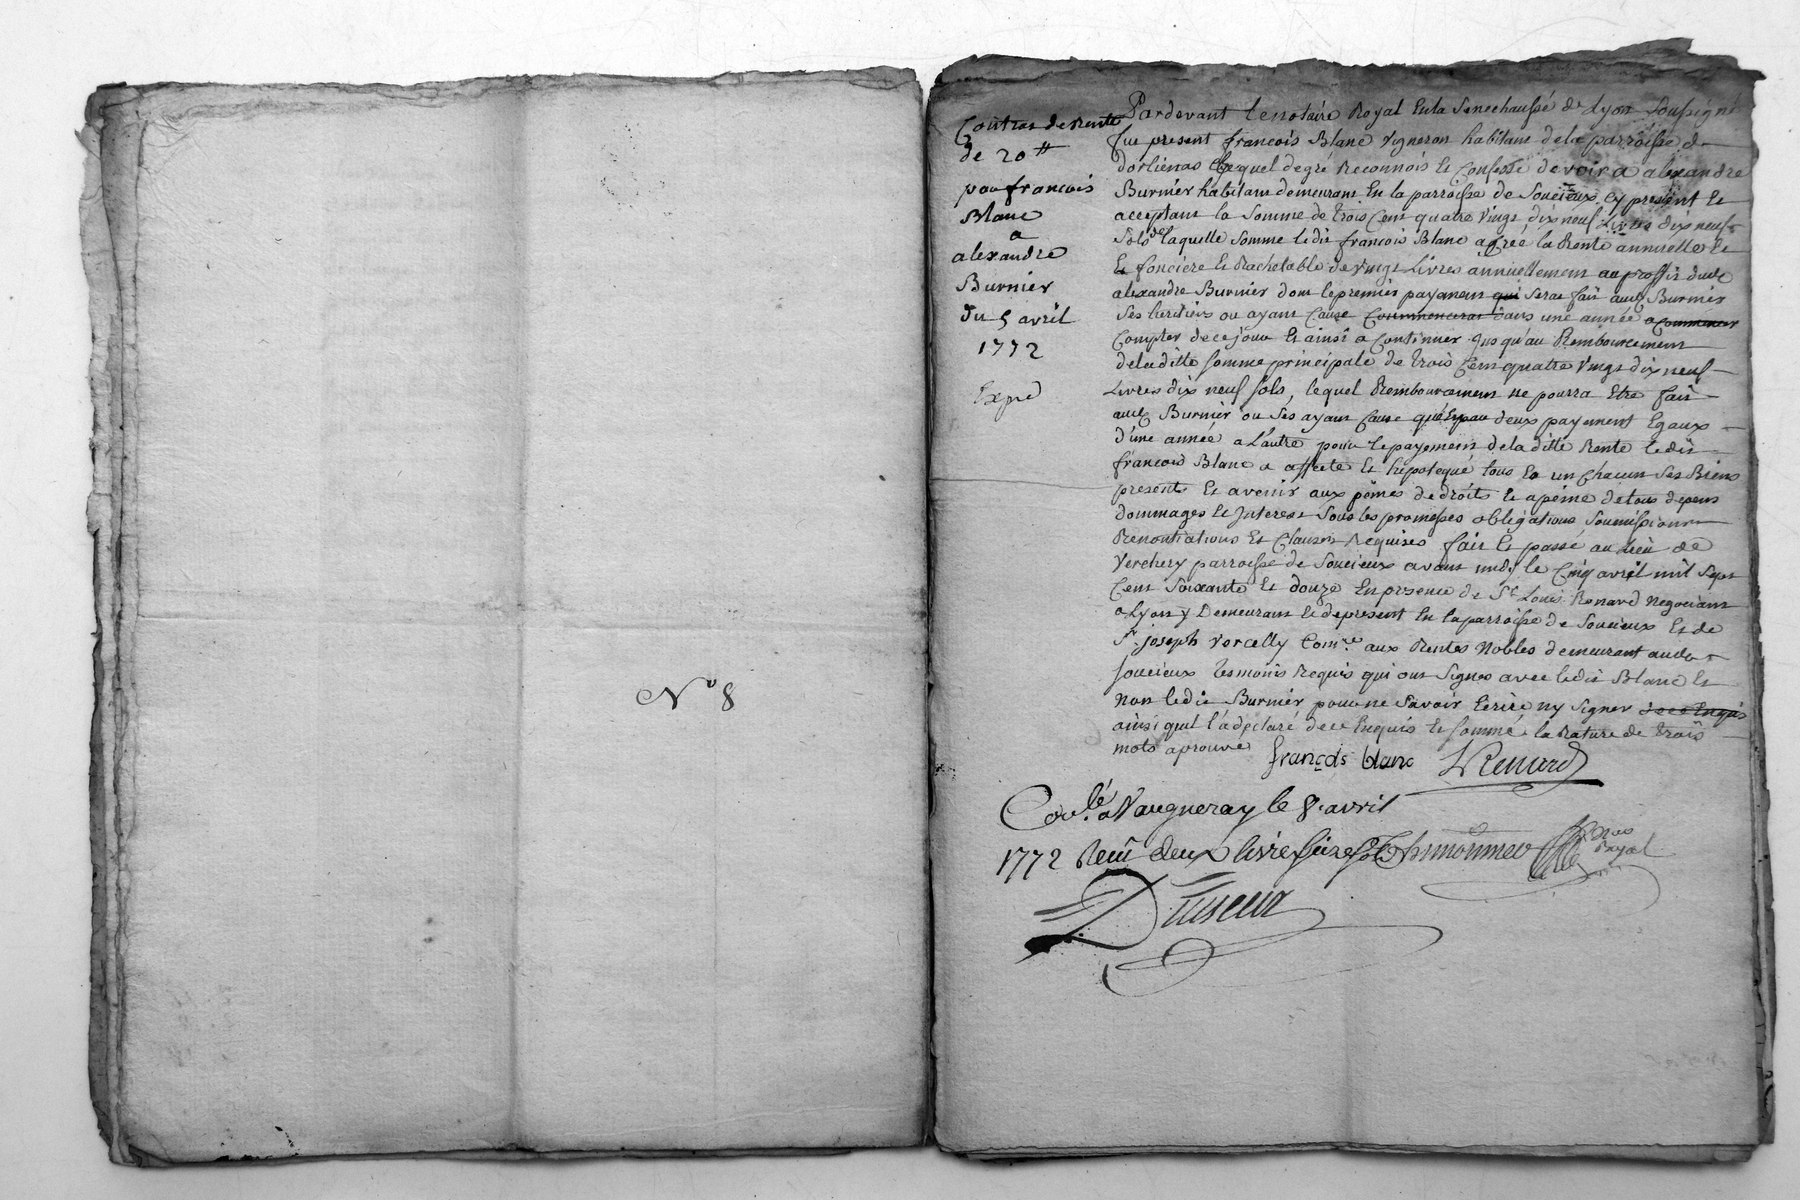 N° 8
Contrat de Rente
de 20 ₶
par francois
Blanc
a
alexandre
Burnier
du 5 avril
1772
Expé
Pardevant le notaire Royal En la Senechaussé de Lyon Soussigné
fut present francois Blanc vigneron habitant de la parroisse d
dorlienas Lequel de gré Reconnois et Confesse devoir a alexandre
Burnier habitant demeurant En la parroisse de Soucieux cy present et
acceptant la Somme de trois Cent quatre vingt dix neuf Livres dix neuf
Sols de laquelle Somme ledit francois Blanc a créé la Rente annuelle et
et fonciere et Rachetable de vingt Livres annuellement au proffit dud.
alexandre Burnier dont le premier payement qui Sera fait aud. Burnier
Ses heritiers ou ayant Cause Commencerat dans une année a Commencer
Compter de ce jour Et ainsi a Continuer Jusqu'au Remboursement
de la ditte Somme principale de trois Cent quatre vingt dix neuf
Livres dix neuf Sols, lequel Remboursement ne pourra Etre fait
aud. Burnier ou Ses ayant Cause qu'En deux payement Egaux
d'une année a L'autre pour le payement de la ditte Rente ledit
francois Blanc a affecté et hipotequé tous et un Chacun Ses Biens
presents et avenir aux peines de droits et apeine de tous depens
dommages et Interest Sous les promesses obligations Soumissions
Renontiations Et Clauses Requises fait et passé au Lieu de
Verchery parroisse de Soucieux avant midy le Cinq avril mil Sept
Cent Soixante et douze En presence de Sr. Louis Renard Negociant
a Lyon y Demeurant et de present En la parroisse de Soucieux et de
Sr. Joseph Vercelly Com.re aux Rentes Nobles demeurant aud.
Soucieux temoins Requis qui ont Signes avec ledit Blanc et
Non ledit Burnier pour ne Savoir Ecrire ny Signer de ce Enquis
ainsi quil l'a declaré de ce Enquis et Sommé, la Rature de trois
mots aprouvé
françois blanc LRenard
Con.lé a Vaugneray le 8. avril
1772 Reçu deux livre seize sols
Royal